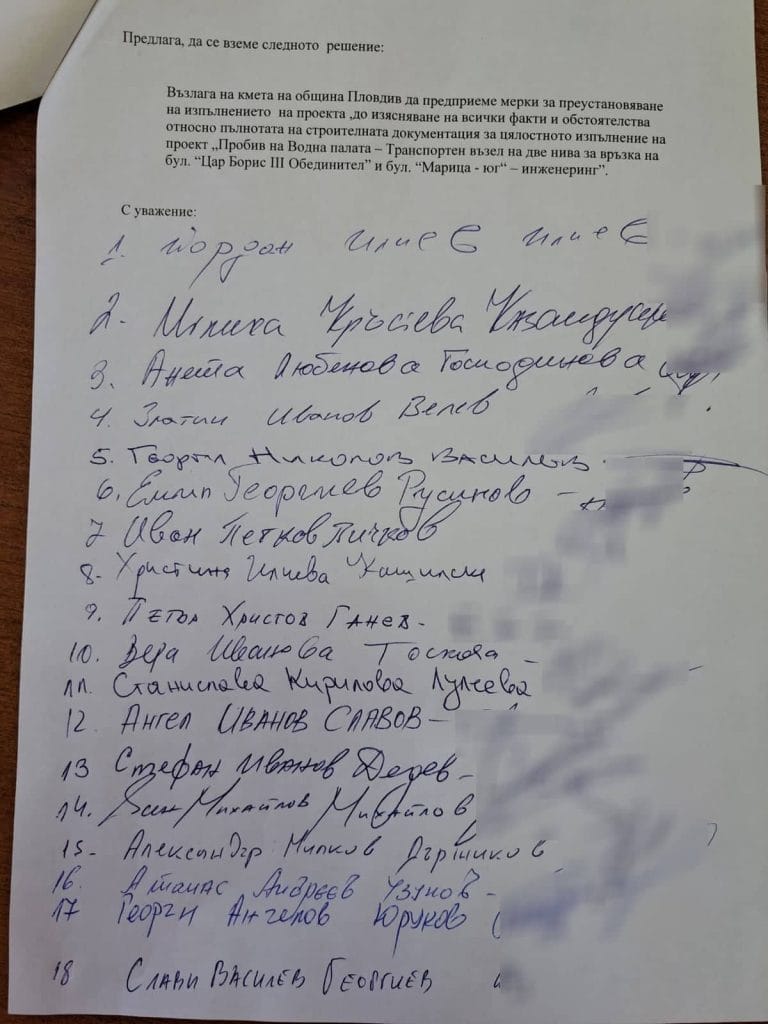 Предлага, да се вземе следното решение:
Възлага на кмета на община Пловдив да предприеме мерки за преустановяване
на изпълнението на проекта ,до изясняване на всички факти и обстоятелства
относно пълнотата на строителната документация за цялостното изпълнение на
проект „Пробив на Водна палата – Транспортен възел на две нива за връзка на
бул. “Цар Борис III Обединител” и бул. “Марица - юг“ – инженеринг”.
С уважение:
1. Йордан Илиев Илиев
2. Милика Кръстева
3. Анета Любенова Господинова
4. Златин Иванов Велев
5. Георги Николов Василев
6. Емил Георгиев Русинов
7 Иван Петков Пичков
8. Христина Илиева
9. Петър Христов Ганев-
10. Вера Иванова Тоскова
11. Станислава Кирилова Лулчева
12 Ангел Иванов Славов-
13 Стефан Иванов Дедев-
14. Михайлов Михайлов
15- Александър Милков Държиков
16. Атанас Андреев Узунов-
17 Георги Ангелов Юруков
18 Слави Василев Георгиев